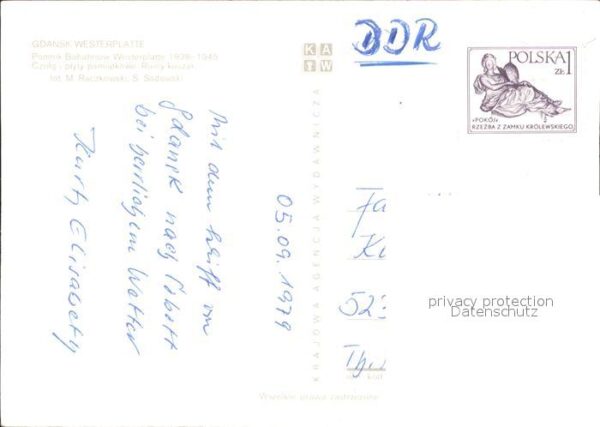 GDAŃSK WESTERPLATTE
Pomnik Bohaterów Westerplatte 1939-1945
Czołg i płyty pamiątkowe. Ruiny koszar
fot. M. Raczkowski, S. Sadowski
K A
A W
DDR
POLSKA 1
ZŁ
«POKÓJ»
RZEŹBA Z ZAMKU KRÓLEWSKIEGO
Mit dem Schiff von
Gdansk nach
bei herrlichem Wetter
Kurt, Elisabeth
05.09.1979
KRAJOWA AGENCJA WYDAWNICZA
Fa
Ku
523
Thü
privacy protection
Datenschutz
Wszelkie prawa zastrzeżone